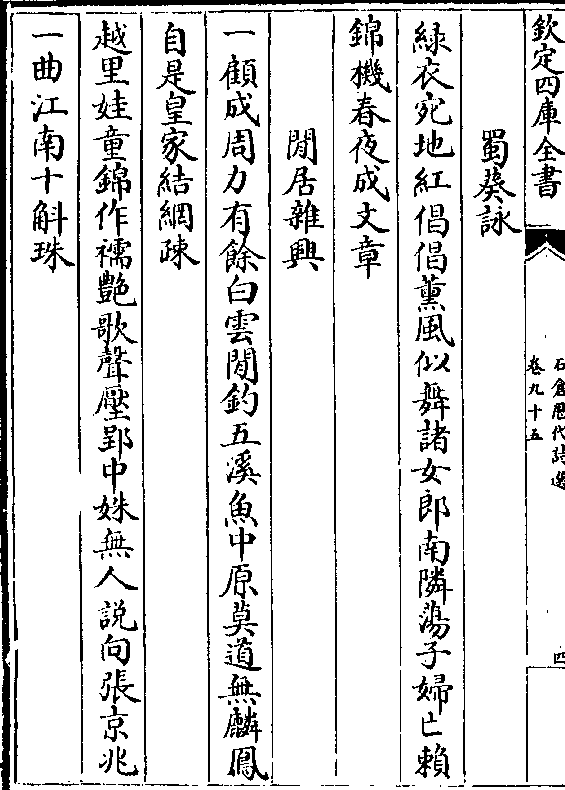 欽定四庫全書
石倉歷代詩選
卷九十五
四
蜀葵詠
綠衣宛地紅倡倡薰風似舞諸女郎南隣蕩子婦亡賴
錦機春夜成文章
閒居雜興
一顧成周力有餘白雲閒釣五溪魚中原莫道無麟鳳
自是皇家結網疎
越里娃童錦作襦艷歌聲壓郢中姝無人説向張京兆
一曲江南十斛珠